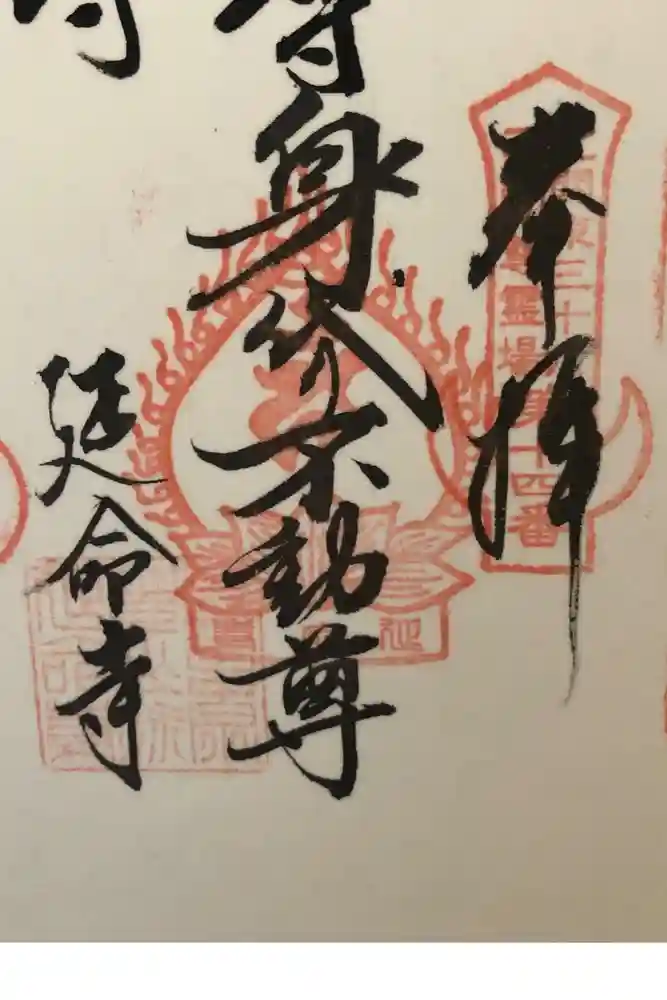 奉拝
三十
霊場第十四番
身代不動尊
延命寺